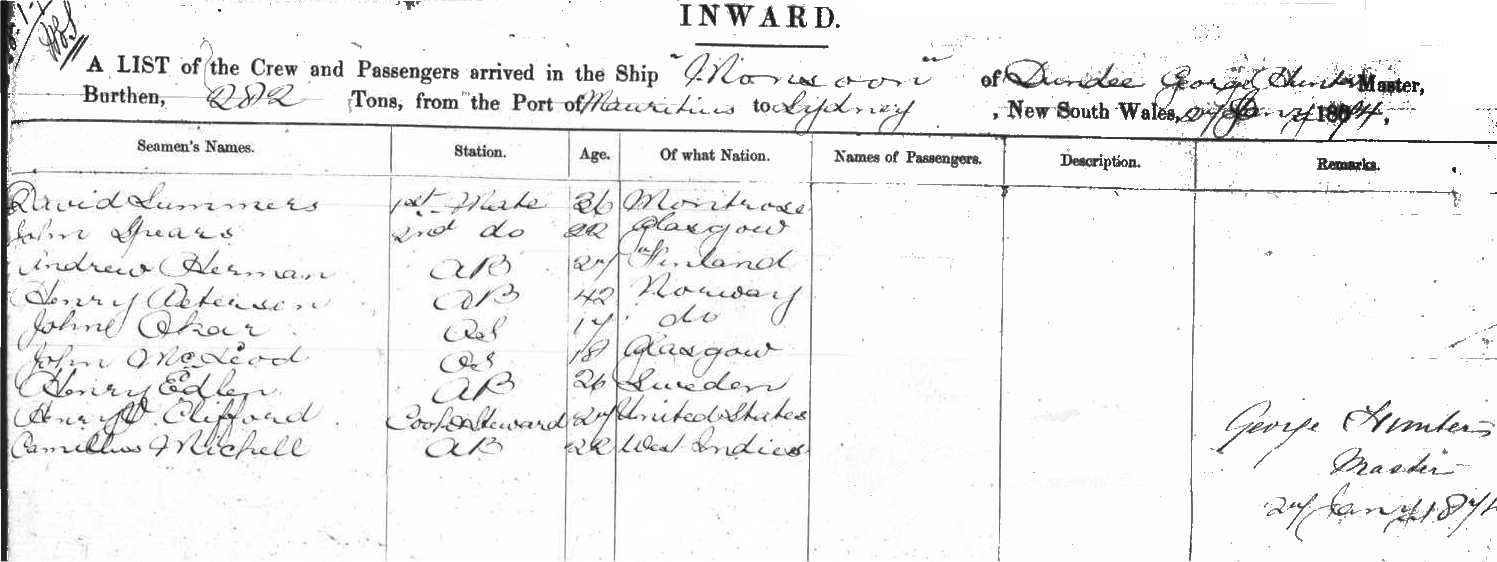 INWARD.
A LIST of the Crew and Passengers arrived in the Ship "Monsoon" of Dundee George Hunter Master,
Burthen, 282 Tons, from the Port of Mauritius to Sydney, New South Wales, 27 Jany 1874,
Seamen's Names. Station. Age. Of what Nation. Names of Passengers. Description. Remarks.
David Summers 1st Mate 36 Montrose
John Spears 2nd do 22 Glasgow
Andrew Herman AB 27 Finland
Henry Peterson AB 42 Norway
John Okar OS 17 do
John McLeod OS 18 Glasgow
Henry Edlen AB 26 Sweden
Henry Clifford Cook & Steward 27 United States
Camillus Michell AB 22 West Indies
George Hunter
Master
27 Jany 187